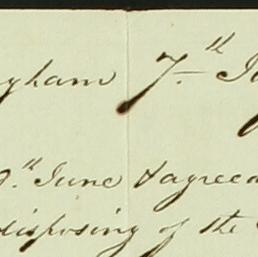 gham 7th Ja
9th June & agreea
disposing of the